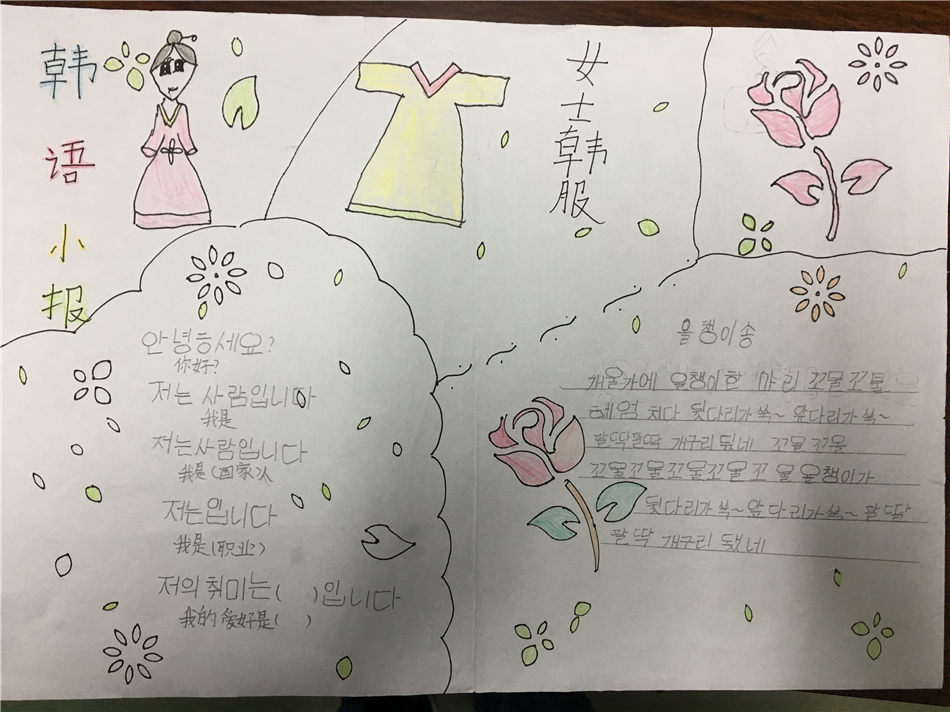 韩语小报
女士韩服
안녕하세요?
你好?
저는 사람입니다
我是
저는사람입니다
我是(国家)人
저는입니다
我是(职业)
저의 취미는( )입니다
我的爱好是( )
올챙이송
개울가에 올챙이한 마리 꼬물꼬물
헤엄 치다 뒷다리가쑥~ 앞다리가 쑥~
팔딱팔딱 개구리 됬네 꼬물꼬물
꼬물꼬물꼬물꼬물 꼬 물 올챙이가
뒷다리가 쑥~ 앞다리가쑥~ 팔딱
팔딱 개구리 됐네